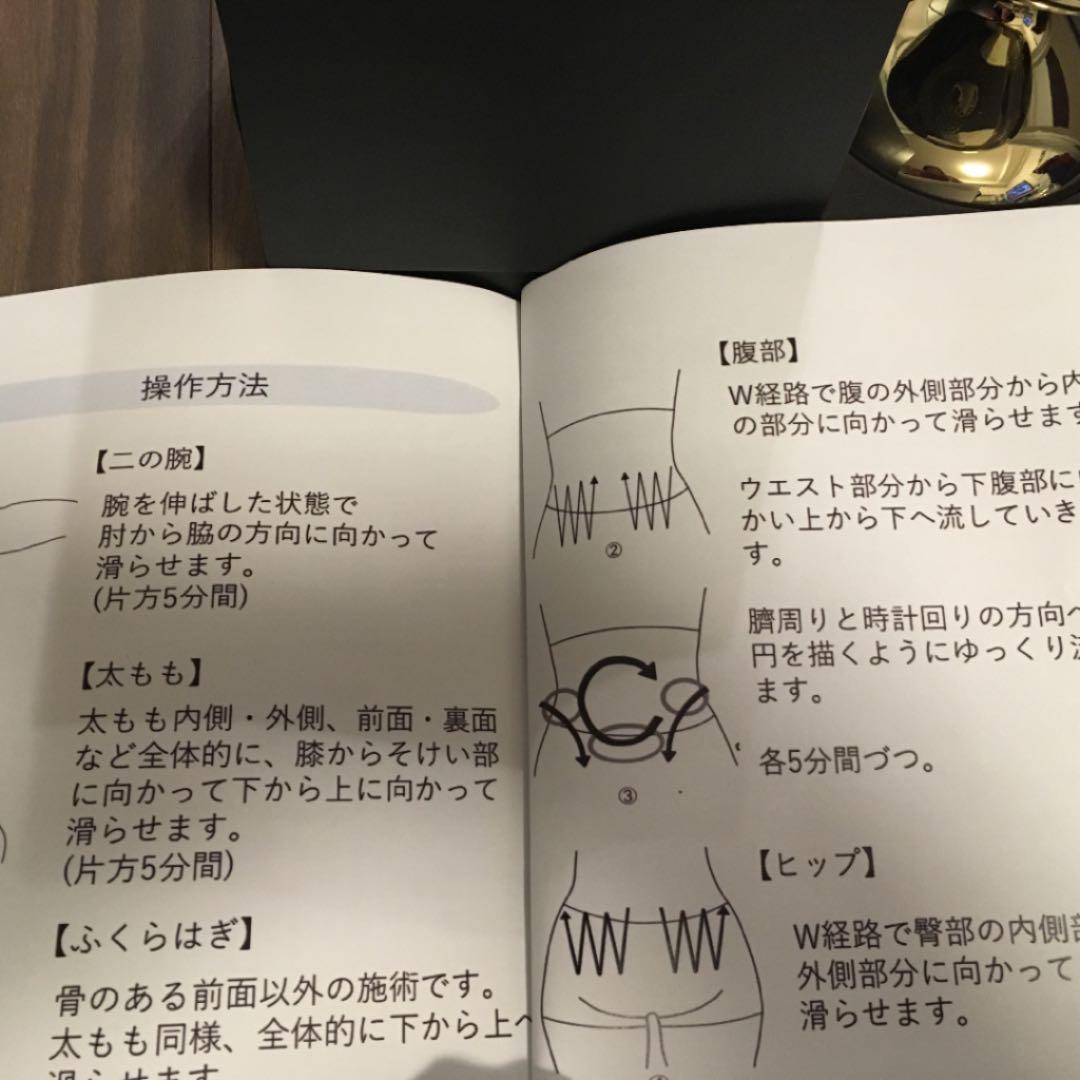 操作方法
【二の腕】
腕を伸ばした状態で
肘から脇の方向に向かって
滑らせます。
(片方5分間)
【太もも】
太もも内側・外側、前面・裏面
など全体的に、膝からそけい部
に向かって下から上に向かって
滑らせます。
(片方5分間)
【ふくらはぎ】
骨のある前面以外の施術です。
太もも同様、全体的に下から上へ
滑らせます
【腹部】
W経路で腹の外側部分から内
の部分に向かって滑らせます
ウエスト部分から下腹部に
かい上から下へ流していき
す。
②
臍周りと時計回りの方向へ
円を描くようにゆっくり
ます。
各5分間づつ。
③
【ヒップ】
W経路で臀部の内側部
外側部分に向かって
滑らせます。